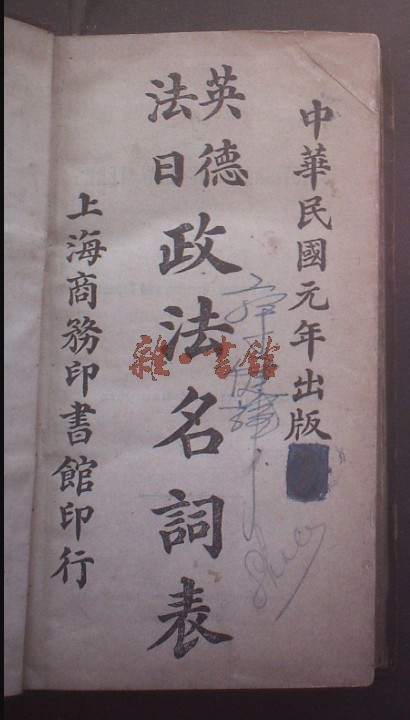 中華民國元年出版
英德
法日
政法名詞表
上海商務印書館印行
雜·書館